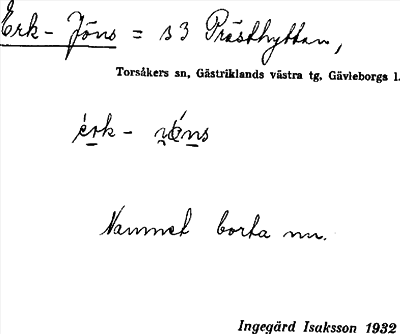 Erk-Jöns = s3 Prästhyttan,
Torsåkers sn, Gästriklands västra tg, Gävleborgs l.
Namnet borta nu.
Ingegärd Isaksson 1932